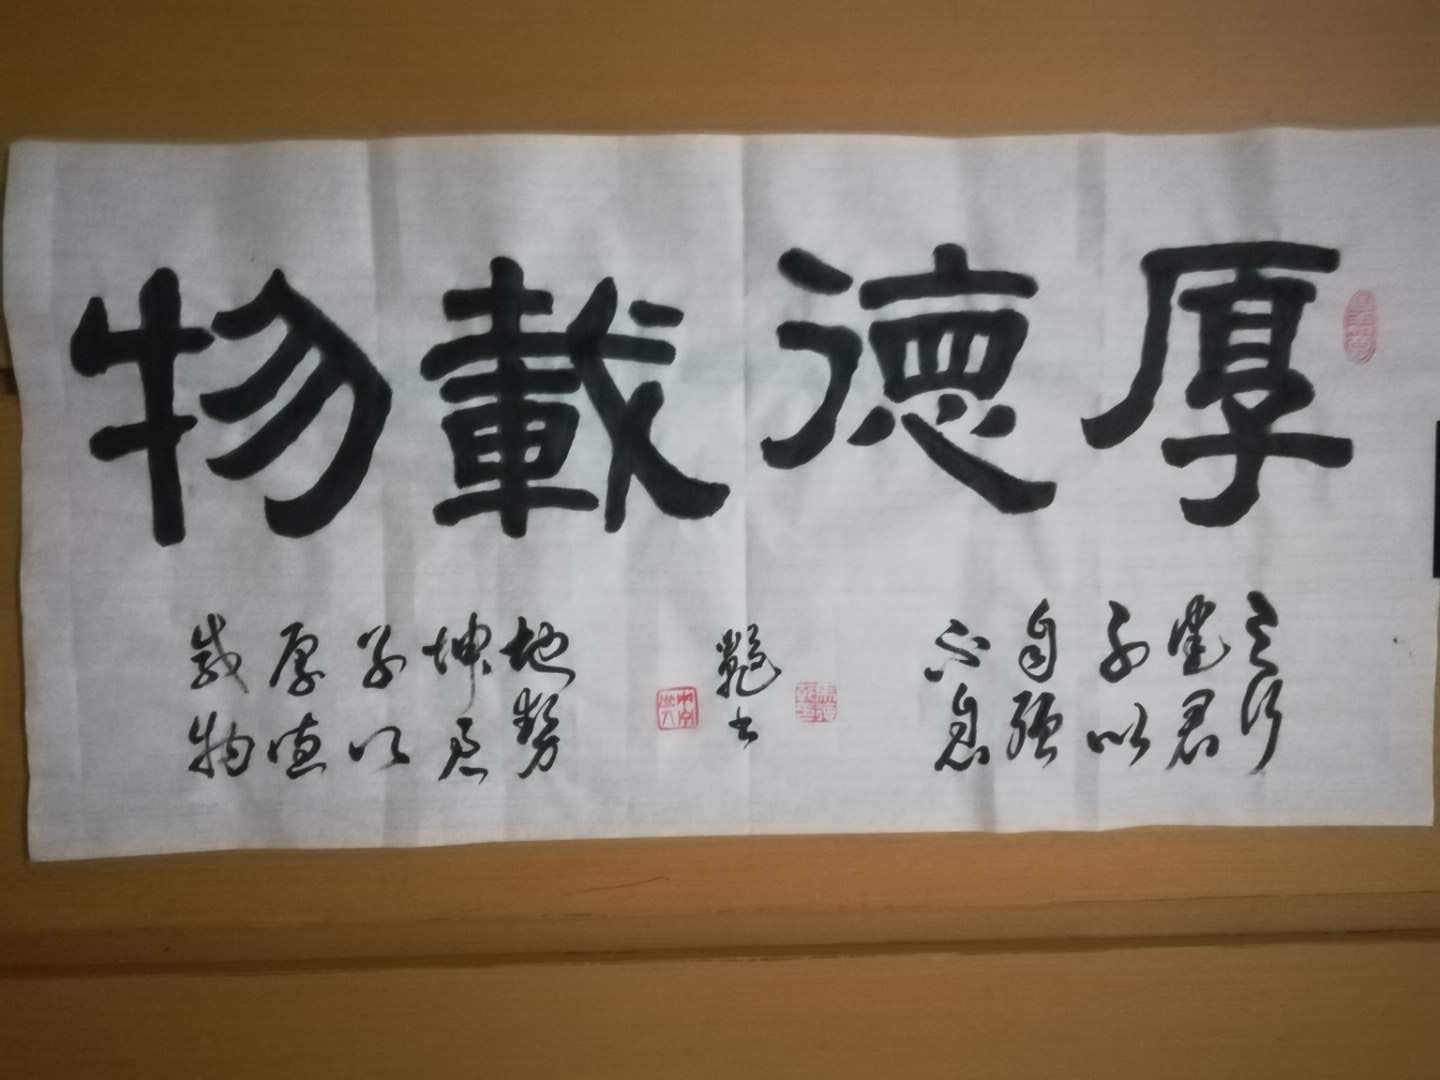 厚德載物
天行
健君
子以
自强
不息
書
地勢
坤君
子以
厚德
載物